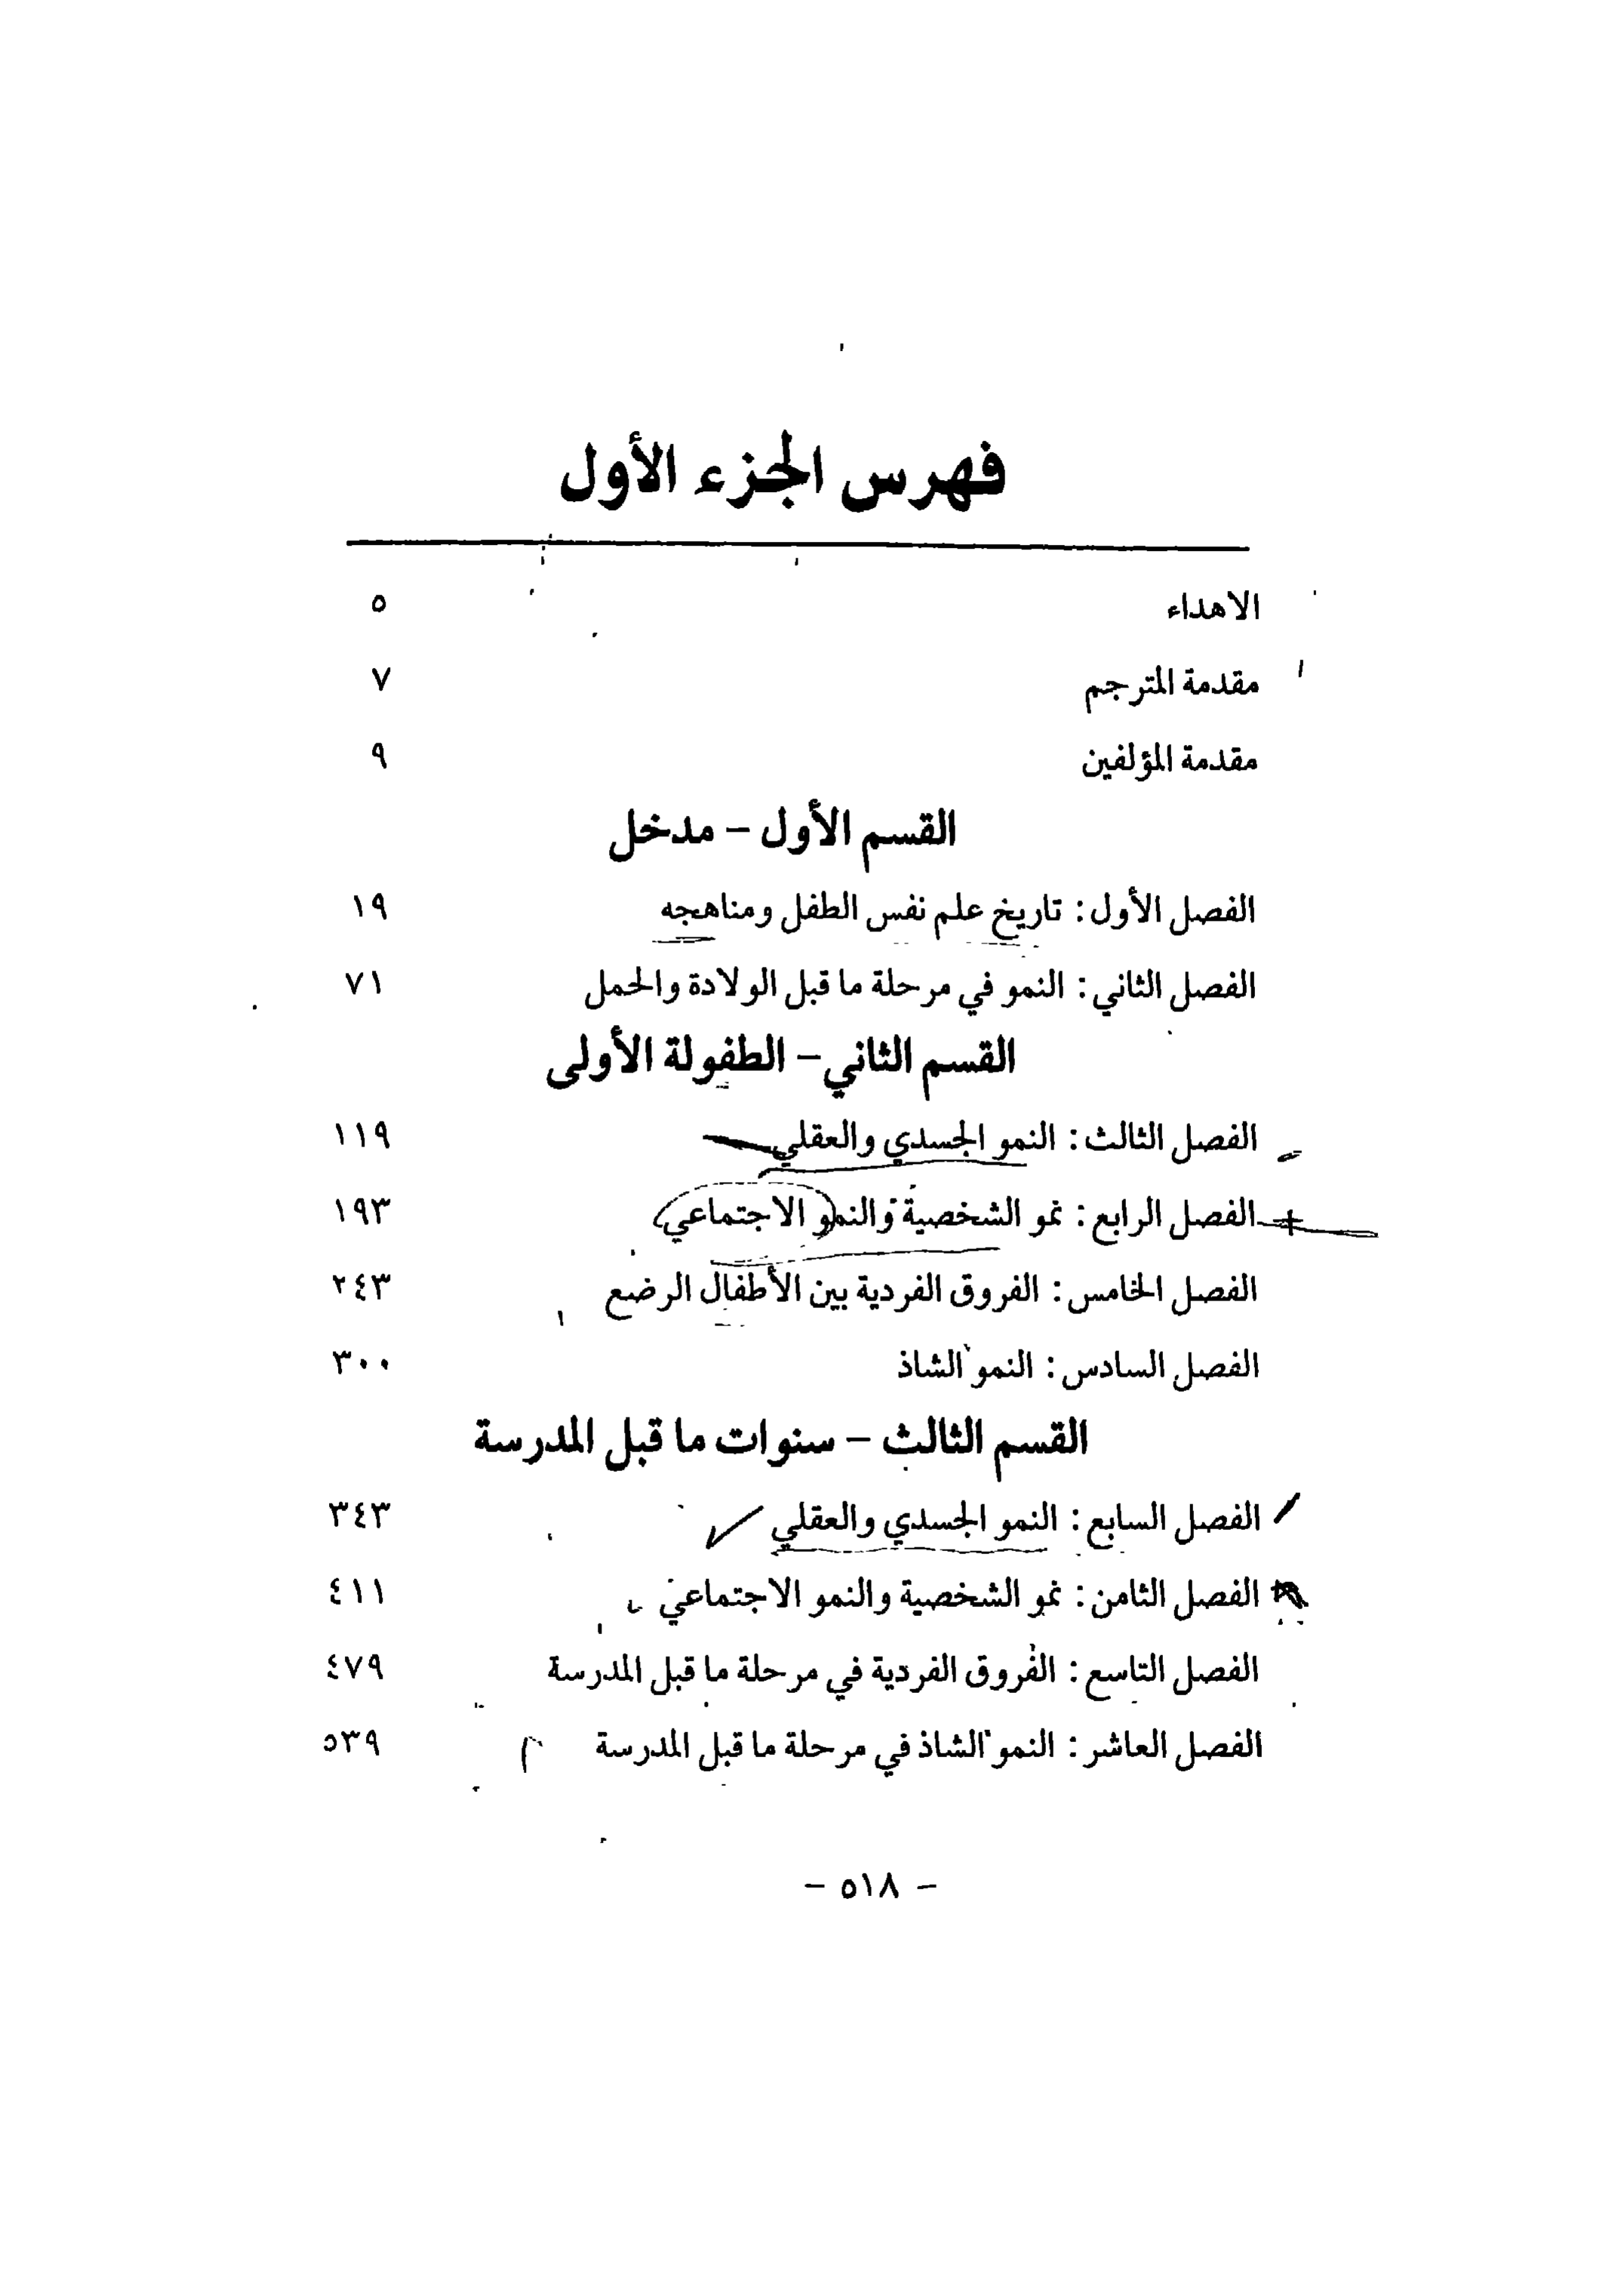 فهرس الجزء الأول
الاهداء ٥
مقدمة المترجم ٧
مقدمة المؤلفين ٩
القسم الأول – مدخل
الفصل الأول : تاريخ علم نفس الطفل ومناهجه ١٩
الفصل الثاني : النمو في مرحلة ما قبل الولادة والحمل ٧١
القسم الثاني – الطفولة الأولى
الفصل الثالث : النمو الجسدي والعقلي ١١٩
الفصل الرابع : نمو الشخصية والنمو الاجتماعي ١٩٣
الفصل الخامس : الفروق الفردية بين الأطفال الرضع ٢٤٣
الفصل السادس : النمو الشاذ ٣٠٠
القسم الثالث – سنوات ما قبل المدرسة
الفصل السابع : النمو الجسدي والعقلي ٣٤٣
الفصل الثامن : نمو الشخصية والنمو الاجتماعي ٤١١
الفصل التاسع : الفروق الفردية في مرحلة ما قبل المدرسة ٤٧٩
الفصل العاشر : النمو الشاذ في مرحلة ما قبل المدرسة ٥٣٩
– ٥١٨ –